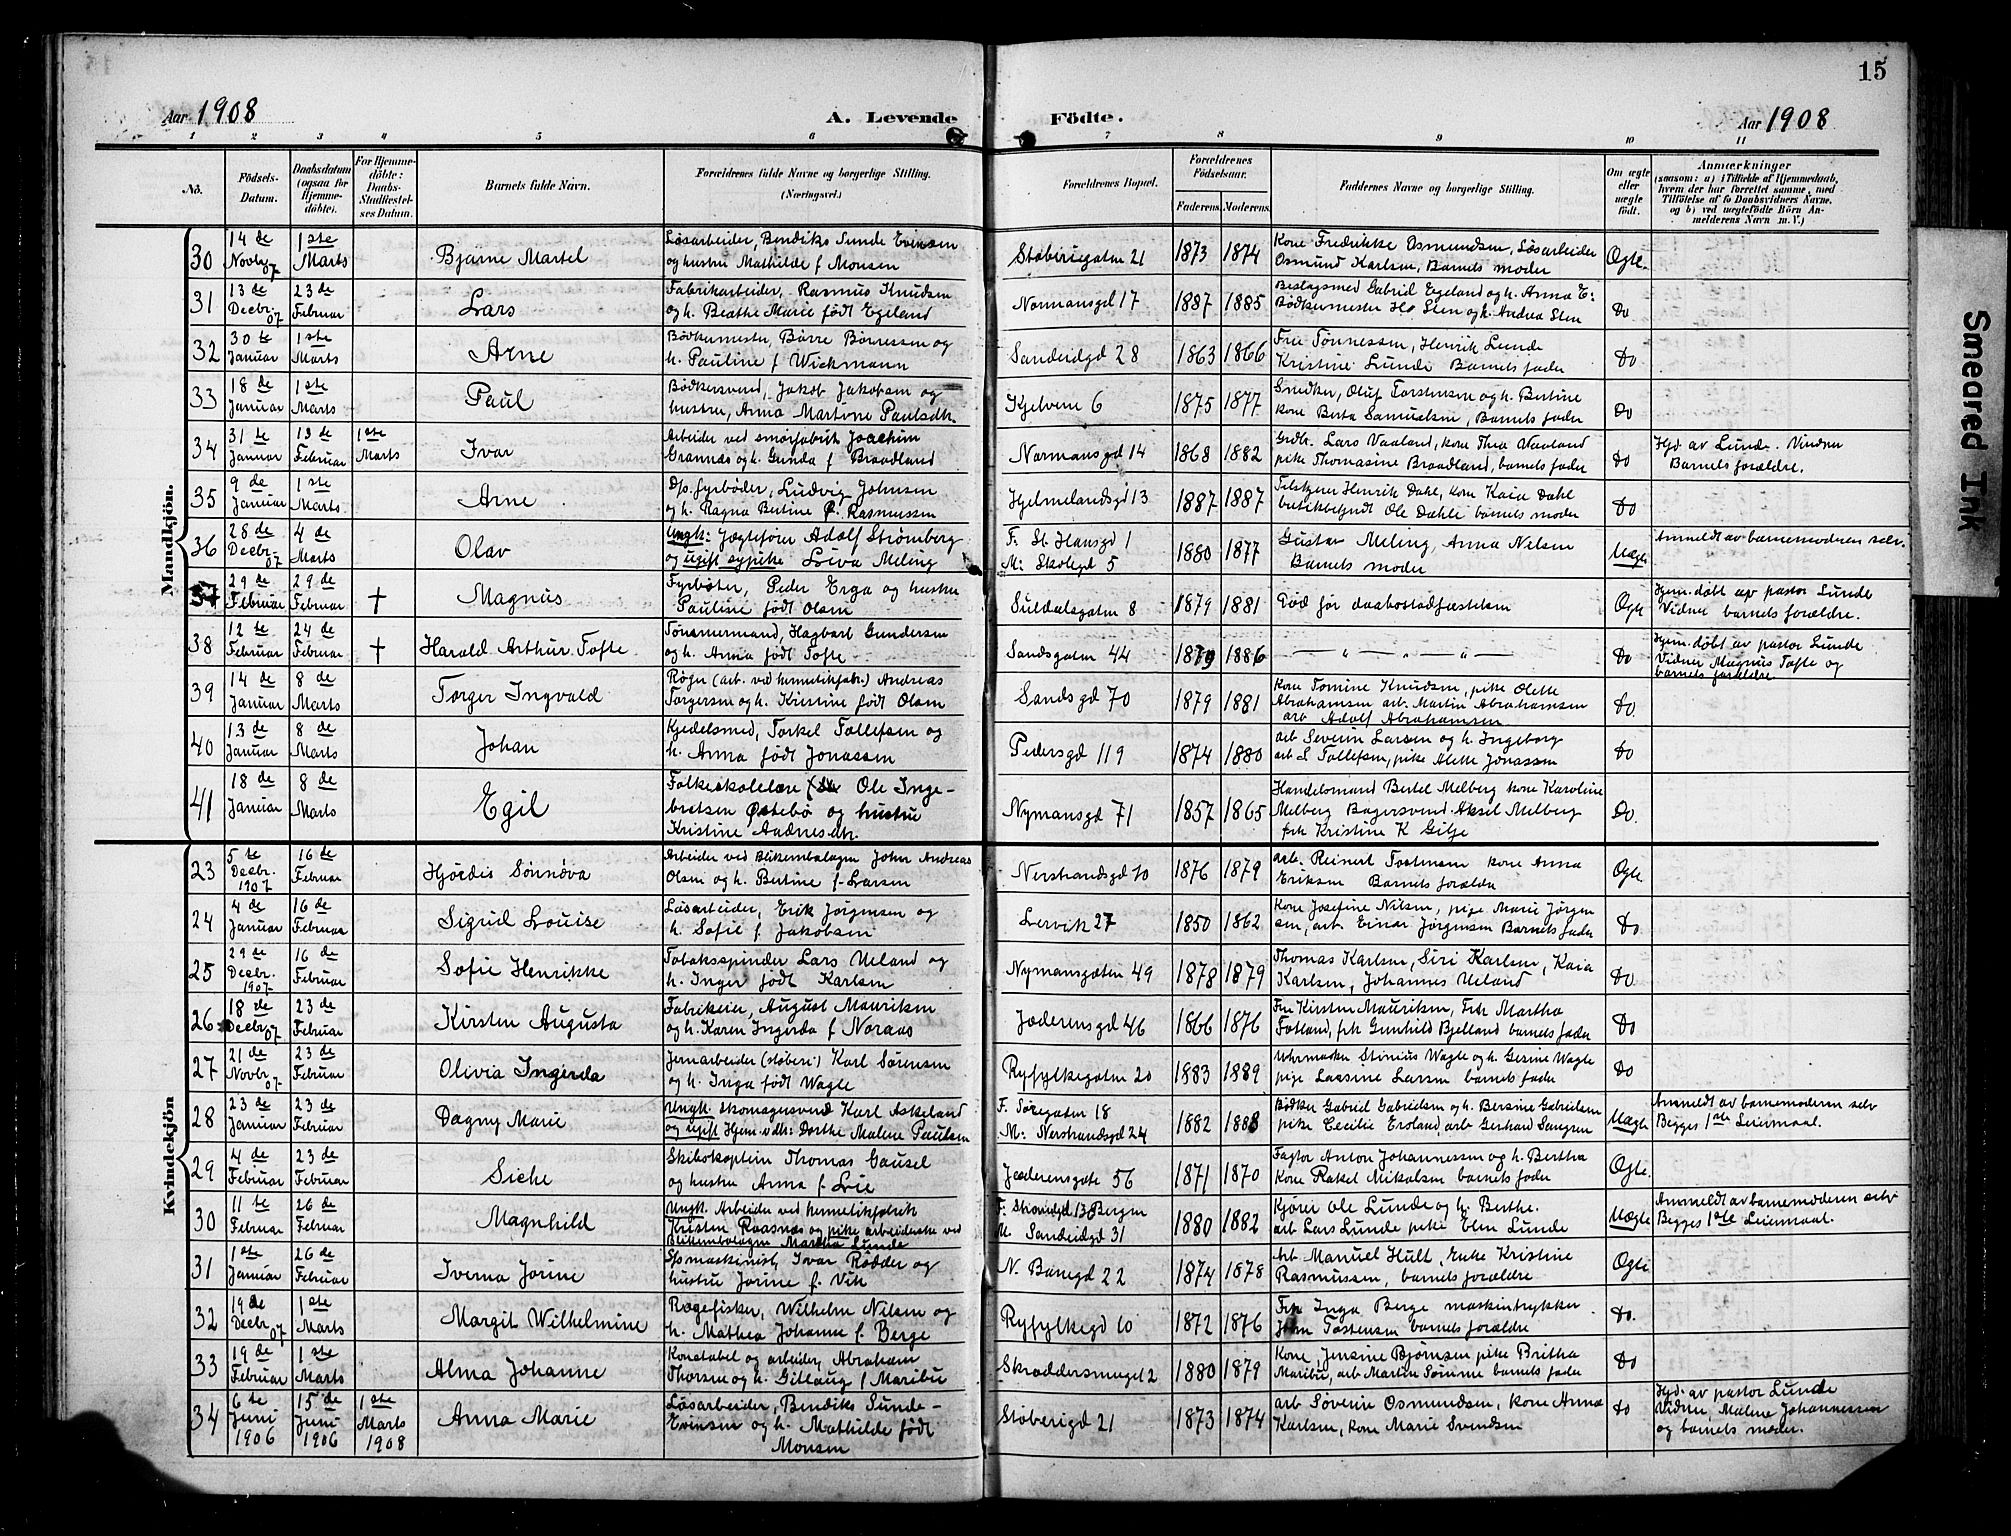 15
Aar 1908
A. Levende Födte.
Aar 1908
1 2 3 4 5 6 7 8 9 10 11
No.
Födsels-Datum.
Daabsdatum (ogsaa for Hjemmedöbte).
For Hjemmedöbte: Daabs-Stadfæstelses Datum.
Barnets fulde Navn.
Forældrenes fulde Navne og borgerlige Stilling. (Næringsvei.)
Forældrenes Bopæl.
Forældrenes Födselsaar.
Faderens. Moderens.
Faddernes Navne og borgerlige Stilling.
Om ægte eller uægte födt.
Anmærkninger
(saasom: a) i Tilfælde af Hjemmedaab, hvem der har forrettet samme, med Tilföielse af to Daabsvidners Navne. og b) ved uægtefödte Börn Anmelderens Navn m. V.)
Mandkjön.
30 14de Novbr 07 1ste Marts Bjarne Martel Løsarbeider, Bendiks Sunde Evinsen og hustru Mathilde f Monsen Støberigaten 21 1873 1874 Kone Fredrikke Osmundsen, Løsarbeider Osmund Karlsen, Barnets moder Ægte.
31 13de Decbr. 07 23de Februar Lars Fabrikarbeider, Rasmus Knudsen og h. Beathe Marie født Egeland Normansgd 17 1887 1885 Beslagsmed Gabriel Egeland og h. Anna E: Bødkermester Sten og h. Andrea Sten Do
32 30te Januar 1ste Marts Arne Bødkermester, Børre Børresen og h. Pauline f Wickmann Sandeidgd 28 1863 1866 Tønnessen, Henrik Lunde Kristine Lunde Barnets fader Do
33 18de Januar 1ste Marts Paul Bødkersvend, Jakob Jakobsen og hustru, Anna Martine Paulsdtr. Kjelvene 6 1875 1877 Snedker, Oluf Torstensen og h. Bertine kone Berta Samuelsen, Barnets fader Do
34 31te Januar 13de Februar 1ste Marts Ivar Arbeider ved smørfabrik Joachim Grannæs og h. Gunda f Braadland Normansgd 14 1868 1882 Grdbr. Lars Vaaland, kone Thea Vaaland pike Thomasine Braadland, barnets fader Do Hjd av Lunde. Vidner Barnets forældre.
35 9de Januar 1ste Marts Arne Dp. fyrbøder, Ludvig Johnsen og h. Ragna Bertine f. Rasmussen Hjelmelandsgd 13 1887 1887 Henrik Dahl, kone Kaia Dæhl Ole Dæhli barnets moder Do
36 28de Decbr. 07 4de Marts Olav Ungk: Jægtefører Adolf Strømberg og ugift sypike Lovisa Meling F. St. Hansgd 1 M: Skolegd 5 1880 1877 Gustav Meling, Anna Nilsen Barnets moder Uægte Anmeldt av barnemoderen selv.
37 29de Februar 29de Februar † Magnus Fyrbøter, Peder Erga og hustru Pauline født Olsen Suldalsgaten 8 1879 1881 Død før daabsstadfæstelsen Ægte Hjem.døbt av pastor Lunde Vidner barnets forældre.
38 12te Februar 24de Februar † Harald Arthur Tofte Tømmermand, Hagbart Gundersen og h. Anna født Tofte Sandsgaten 44 1879 1886 — " — " — " — Do Hjem.døbt av pastor Lunde Vidner Magnus Tofte og barnets forældre
39 14de Januar 8de Marts Torger Ingvald Røger (arb. ved hermetikfabr.) Andreas Torgersen og h. Kristine født Olsen Sandsgd 70 1879 1881 Kone Tomine Knudsen, pike Olette Abrahamsen arb. Martin Abrahamsen arb Adolf Abrahamsen Do
40 13de Januar 8de Marts Johan Kjedelsmed, Torkel Tollefsen og h. Anna født Jonassen Pedersgd 119 1874 1880 arb Severin Larsen og h. Ingeborg arb L Tollefsen, pike Alette Jonassen Do
41 18de Januar 8de Marts Egil Folkeskolelære Ole Ingebretsen Østebø og hustru Kristine Andersdtr. Nymansgd 71 1857 1865 Handelsmand Bertel Melberg kone Karoline Melberg Bagersvend Aksel Melberg frk Kristine K Gilje Do.
Kvindekjön
23 5te Decbr. 1907 16de Februar Hjørdis Sønnøva Arbeider ved Blikemballagen John Andreas Olsen og h. Bertine f. Larsen Nerstrandsgd 10 1876 1879 arb. Reinert Tostensen kone Anna Eriksen Barnets forældre Ægte.
24 4de Januar 16de Februar Sigrid Louise Løsarbeider, Erik Jørgensen og h. Sofie f Jakobsen Lervik 27 1850 1862 Kone Josefine Nilsen, pige Marie Jørgensen, arb. Einar Jørgensen Barnets fader Do
25 29de Decbr. 1907 16de Februar Sofie Henrikke Tobaksspinder Lars Ueland og h. Inger født Karlsen Nymansgaten 49 1878 1879 Thomas Karlsen, Siri Karlsen, Kaia Karlsen, Johannes Ueland Do
26 18de Decbr 07 23de Februar Kirsten Augusta Fabrikeier, August Mauritzen og h. Karen Ingerda f Noraas Jæderensgd 46 1866 1876 Fru Kirsten Mauritzen, Frk Martha Fotland, frk Gunhild Bjelland barnets fader Do
27 21de Novbr. 07 23de Februar Olivia Ingerda Jernarbeider (støberi) Karl Sørensen og h. Inga født Wagle Ryfylkegaten 20 1883 1889 Uhrmaker Stinius Wagle og h. Gesine Wagle pige Laasine Larsen barnets fader Do
28 23de Januar 23de Februar Dagny Marie Ungk. Skomagersvend Karl Askeland og ugift Hjem.vdh: Dorthe Malene Paulsen F. Søregaten 18 M: Nerstrandsgd 24 1882 1888 Bødker Gabriel Gabrielsen og h. Bersine Gabrielsen pike Cecilie Eroland, arb Gerhard Uægte Anmeldt av barnemoderen selv Begges 1ste Leiermaal.
29 4de Februar 23de Februar Siche Skibskaptein Thomas Gausel og hustru Anna f. Lie Jæderensgate 56 1871 1870 Fagtor Anton Johannessen og h. Bertha Kone Rakel Mikalsen barnets fader Ægte.
30 11te Februar 26de Februar Magnhild Ungk. Arbeider ved hermetikfabrik Kristen Raasnæs og pike arbeiderske ved Blikemballagen Martha Lunde F. 13 Bergen M Sandeidgd 31 1880 1882 Kjører Ole Lunde og h. Berthe. arb Lars Lunde pike Elen Lunde Uægte Anmeldt av barnemoderen selv Begges 1ste Leiermaal.
31 1ste Januar 26de Februar Iverna Jorine Dpmaskinist, Ivar Rødder og hustru Jorine f. Vik N. Banegd 22 1874 1878 Arb Manuel Hult, Enke Kristine Rasmussen, barnets forældre Ægte
32 19de Decbr. 07 1ste Marts Margit Wilhelmine Røgefisker, Wilhelm Nilsen og h. Mathea Johanne f. Berge Ryfylkegd 10 1872 1876 Frk Inga Berge maskintrykker John Tostensen barnets forældre Do.
33 19de Februar 1ste Marts Alma Johanne Konstabel og arbeider, Abraham Thorsen og h. Gitlaug f Maribu Skræddersmuget 2 1880 1879 Kone Jensine Bjørnsen pike Britha Maribu, arb Martin Sømme barnets fader Do
34 6te Juni 1906 15de Juni 1906 1ste Marts 1908 Anna Marie Løsarbeider, Bendiks Sunde-Evinsen og h. Mathilde født Monsen Støberigd 21 1873 1874 arb Søverin Osmundsen, kone Anna Karlsen, kone Marie Svendsen Do Hjd. av pastor Lunde Vidner, Malene Johannessen og barnets moder.
Smeared Ink